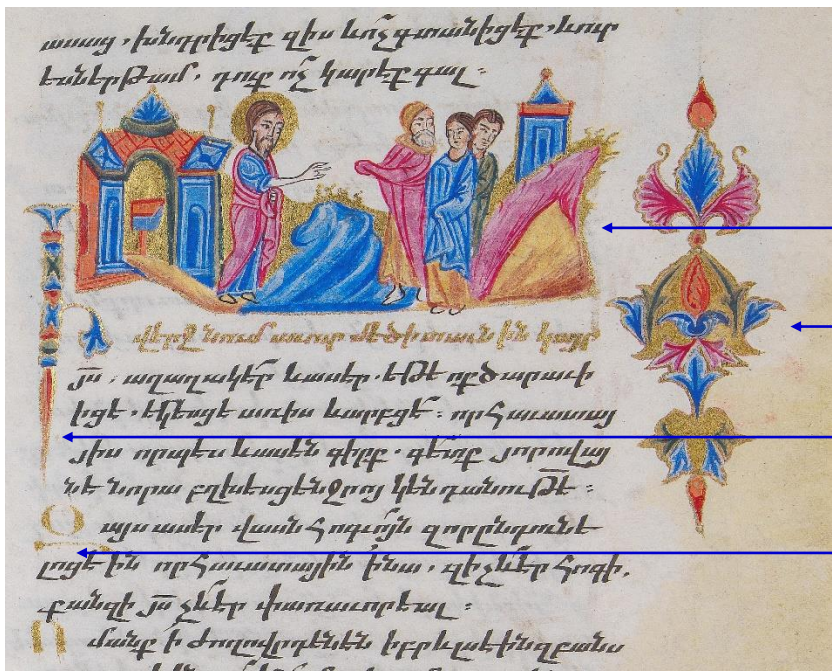 ասաց, խնդրիցէք զիս և ո՛չ գտանիցէք, և ուր
ես երթամ, դուք ո՛չ կարէք գալ։
Ի վերջնում աւուր մեծի տաւնին կայր
յս, աղաղակէր և ասէր, եթէ ոք ծարաւի
իցէ, եկեսցէ առ իս և արբցէ։ որ հաւատայ
յիս որպէս և ասեն գիրք, գետք յորովայ
նէ նորա բղխեսցեն ջրոյ կենդանութե։
Զայս ասէր վասն հոգւոյն զոր ընդունե
լոց էին որ հաւատային ի նա, զի չև էր հոգի,
քանզի յս չև էր փառաւորեալ։
Ոմանք ի ժողովրդենէն իբրև լսէին զբանս